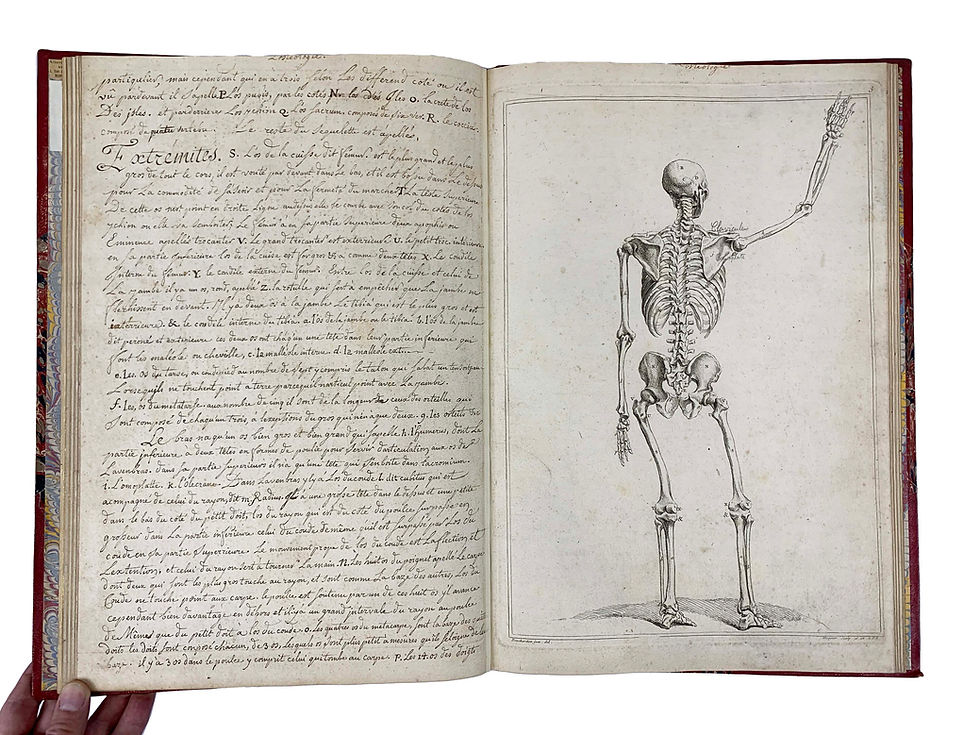 Osteologie.
particulier, mais cependant qui en a trois selon les differend coté ou il est
vü par devant il s'apelle P. Los pubis, par les cotés N. los Des Iles O. la crete de los
Des isles. et par derriere Los ischion Q. Los sacrum. composés de six ver. R. le coccix
composé de quatre vertebres. Le reste du squelette est apellés,
Extrémites. S. L'os de la cuisse dit femur. est le plus grand et le plus
gros de tout le cors, il est vouté par devant dans le bas, et il est bossu dans
pour La commodité de s'asseoir et pour La fermeté du marcher T. La teste superieure
De cette os n'est point en droite ligne
ischion ou elle va s'emboiter; Le femur a en sa partie superieure deux apophises ou
Eminence apellés trocanter V. Le grand trocanter est exterrieur U. le petit troc. interieure
en sa partie inferieure los de la cuisse est fort gros et a comme deux tetes, X. Le condile
interne du femur. Y. le condile externe du femur. Entre los de la cuisse et celui de
La jambe il y a un os, rond, apellé Z. la rotulle qui sert a empêcher que La jambe ne
flechissent en devant. Il y a deux os a la jambe Le tibia qui est le plus gros et est
interrieure). &. le condile interne du tibia. a. l'os de la jambe ou le tibia. b. l'os de la jambe
dit peroné et exterieure ces deux os ont chaqun une tete dans leur partie inferieure qui
font les maleole ou cheville, c. la malleole interne. d. la malleole ext.
e. Les. os du tarse, ou coudepied au nombre de sept y compris le talon qui
Lorsequils ne touchent point a terre parcequel n'articul point avec La jambe.
f. Les, os du metatarse. aux nombre de cinq il sont de la longeur de ceux des orteilles, qui
sont composé de chaqu'un trois, a l'exceptions du gros qui n'en a que deux. g. les orteils
Le bras n'a qu'un os bien gros et bien grand qui s'apelle h. l'humerus, dont la
partie inferieure a deux tetes en formes de poulie pour servir d'articulation aux os de
L'avenbras. dans sa partie superieurs il n'a qu'une tete qui s'emboite dans l'acromium.
i. L'omoplatte. k. l'olecrane. Dans l'avenbras y a Los du coude l. dit cubitus qui est
acompagné de celui du rayon, dit m. Radius, il a une grosse tete dans le dessus et une petite
dans le bas du coté du petit doit, los du rayon qui est du coté du poulce, surpasse en
grosseur dans La partie inferieure celui du coude de même qu'il est surpassé par Los du
coude en sa partie superieure. Le mouvement propre de los du coude est La flection et
L'extention; et celui du rayon sert a tourner La main. N. Les huit os du poignet apellé Le carpe
dont deux qui sont les plus gros touche au rayon, et sont comme La baze des autres, Los du
Coude ne touche point aux carpe. le poulce est soutenu par un de ces huit os, il avance
cependant bien davantage en dehors et il y a un grand intervale du rayon au poulce
de Mêmes que du petit doit a los du coude. o. Les quatres os du metacarpe, sont la baze des
doits les doits sont composé chacun, de 3 os, lesquels os sont plus petit a mesures qu'ils s'eloigne de la
baze. il y a 3 os dans le poulce, y comprit celui qui tombe au carpe. P. Les 14. os des doigts
Osteologie
Clavicule